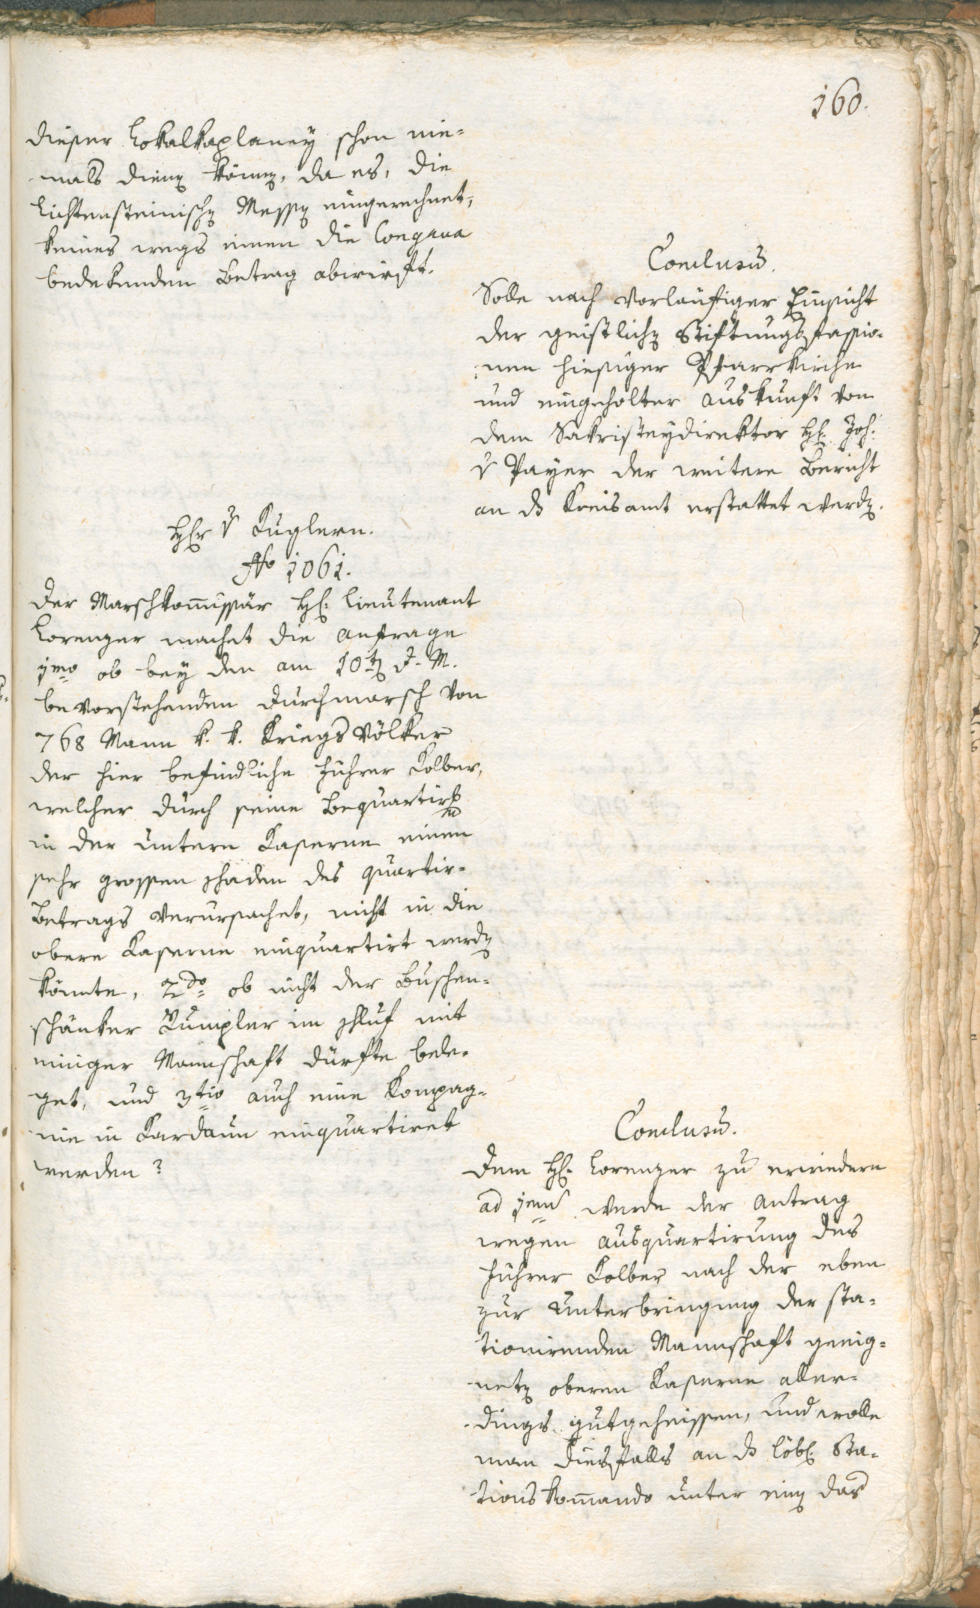 160.
dieser Lokalkaplaney schon nie-
mals dienen können, da es, die
Lichtensteinischen Messen eingerechnet,
keines wegs einen die Congrua
bedekenden Betrag abwirft.
Conclusum.
Solle nach vorläufiger Einsicht
der geistlichen Stiftungsfassio-
nen hiesiger Pfarrkirche
und eingeholter Auskunft von
dem Sakristeydirektor H. Joh.
v Payer der weitere Bericht
an das Kreisamt erstattet werden.
Herr v Kuglern.
No 1061.
Der Marschkommissär H. Lieutenant
Lorenzer machet die Anfrage
1mo ob bey den am 10ten d. M.
bevorstehenden Durchmarsch von
768 Mann k. k. Kriegsvölker
der hier befindliche Führer Kolber,
welcher durch seine Bequartirung
in der untern Kaserne einen
sehr grossen schaden des quartir-
Betrags verursachet, nicht in die
obere Kaserne einquartirt werden
könnte, 2do ob nicht der Buschen-
schänker Rumpler im schluf mit
einiger Mannschaft dürfte bele-
get, und 3tio auch eine Kompag-
nie in Kardaun einquartiret
werden?
Conclusum.
Dem H. Lorenzer zu erwiedern
ad 1mum werde der Antrag
wegen Ausquartirung des
Führer Kolber nach der eben
zur Unterbringung der sta-
tionirenden Mannschaft geeig-
neten oberen Kaserne aller-
dings gutgeheissen, und wolle
man diesfalls an das löbl. Sta-
tionskommando unter einen das